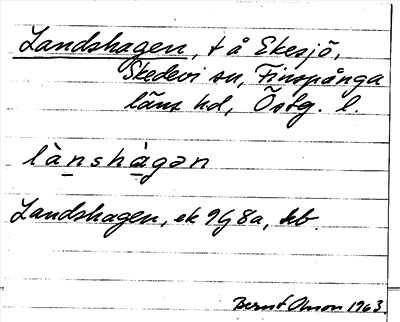 Landshagen, t å Ekesjö,
Skedevi sn, Finspånga
läns hd, Östg. l.
lànshàgən
Landshagen, ek 9G8a, hb
Bernt Olson 1963.